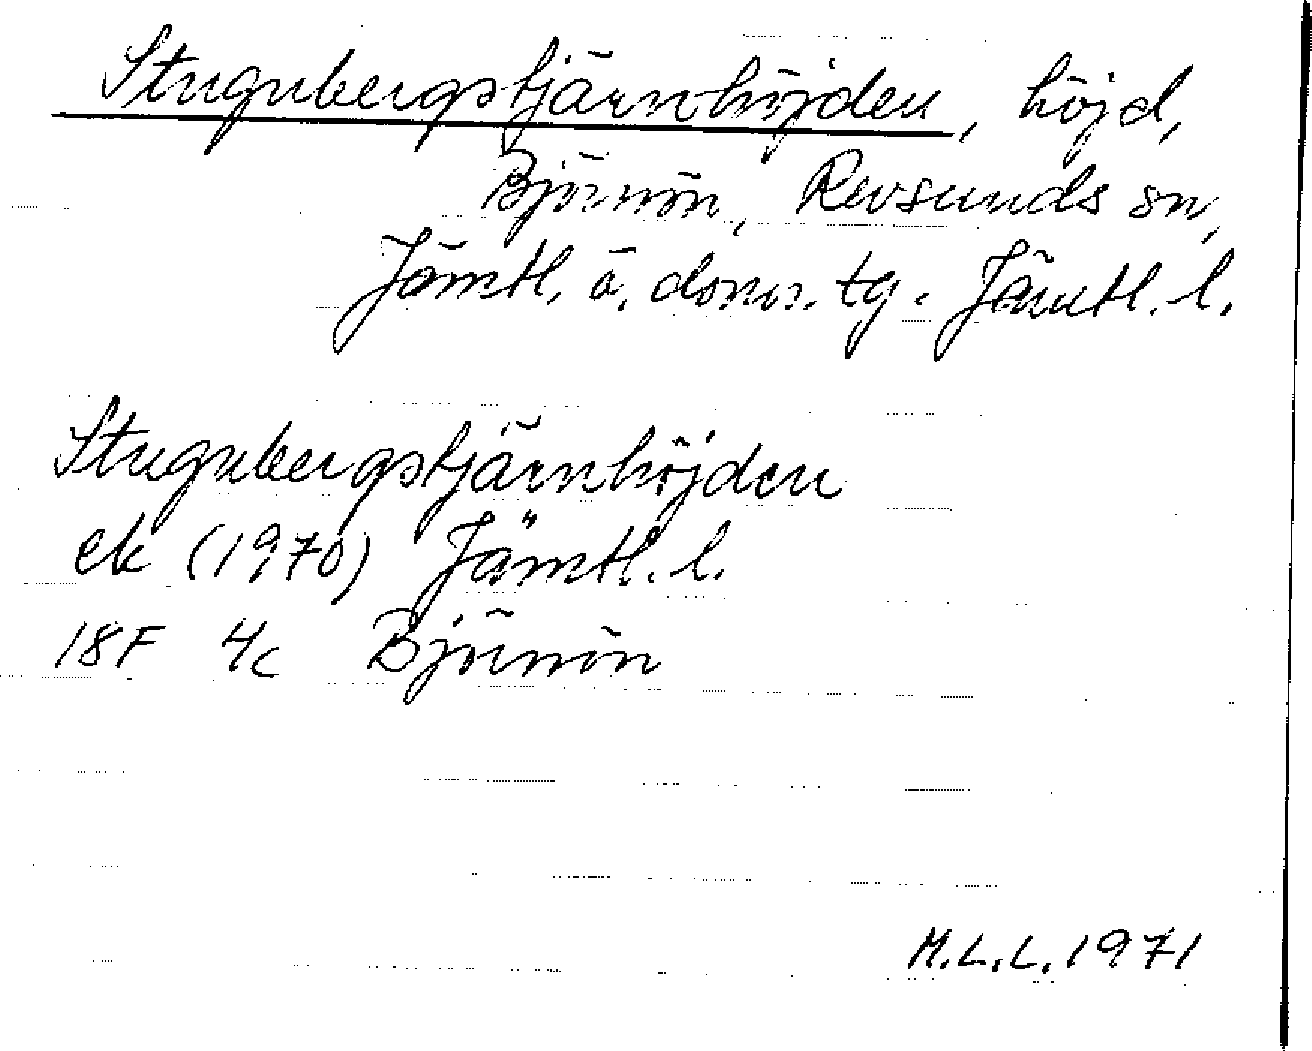 Stugubergstjärnhöjden, höjd,
Björnön, Revsunds sn,
Jämtl. ö. doms. tg. Jämtl. l.
Stugubergstjärnhöjden
ek (1970) Jämtl. l.
18F 4c Björnön
M.L.L. 1971